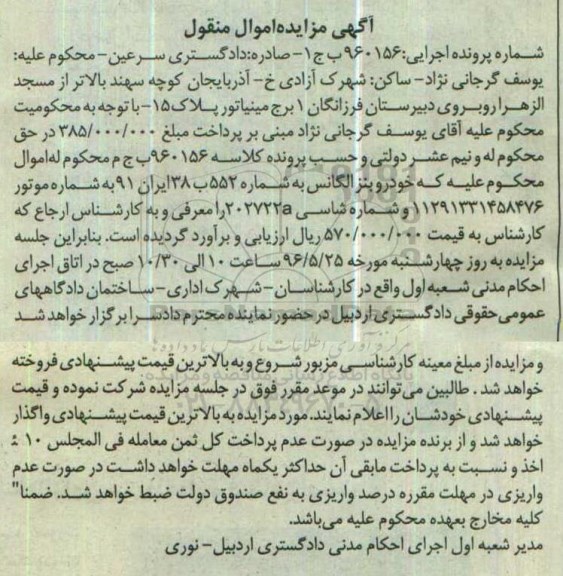 آگهی مزایده اموال منقول
شماره پرونده اجرایی:۹۶۰۱۵۶ب ج۱- صادره:دادگستری سرعین- محکوم علیه:
یوسف گرجانی نژاد- ساکن: شهرک آزادی خ- آذربایجان کوچه سهند بالاتر از مسجد
الزهرا روبروی دبیرستان فرزانگان ۱ برج مینیاتور پلاک۱۵- با توجه به محکومیت
محکوم علیه آقای یوسف گرجانی نژاد مبنی بر پرداخت مبلغ ۳۸۵/۰۰۰/۰۰۰ در حق
محکوم له ونیم عشر دولتی و حسب پرونده کلاسه ۹۶۰۱۵۶ب ج م محکوم له اموال
محکوم علیه که خودرو بنز الکانس به شماره ۵۵۲ب۳۸ ایران ۹۱ به شماره موتور
۱۱۲۹۱۳۳۱۴۵۸۴۷۶ و شماره شاسی ۲۰۲۷۲۲a را معرفی و به کارشناس ارجاع که
کارشناس به قیمت ۵۷۰/۰۰۰/۰۰۰ ریال ارزیابی و برآورد گردیده است. بنابراین جلسه
مزایده به روز چهارشنبه مورخه ۹۶/۵/۲۵ ساعت ۱۰ الی ۱۰/۳۰ صبح در اتاق اجرای
احکام مدنی شعبه اول واقع در کارشناسان- شهرک اداری- ساختمان دادگاههای
عمومی حقوقی دادگستری اردبیل در حضور نماینده محترم دادسرا برگزار خواهد شد
و مزایده از مبلغ معینه کارشناسی مزبور شروع و به بالاترین قیمت پیشنهادی فروخته
خواهد شد . طالبین می توانند در موعد مقرر فوق در جلسه مزایده شرکت نموده و قیمت
پیشنهادی خودشان را اعلام نمایند. مورد مزایده به بالاترین قیمت پیشنهادی واگذار
خواهد شد و از برنده مزایده در صورت عدم پرداخت کل ثمن معامله فی المجلس ۱۰ ٪
اخذ و نسبت به پرداخت مابقی آن حداکثر یکماه مهلت خواهد داشت در صورت عدم
واریزی در مهلت مقرره درصد واریزی به نفع صندوق دولت ضبط خواهد شد. ضمنا"
کلیه مخارج بعهده محکوم علیه می‌باشد.
مدیر شعبه اول اجرای احکام مدنی دادگستری اردبیل- نوری